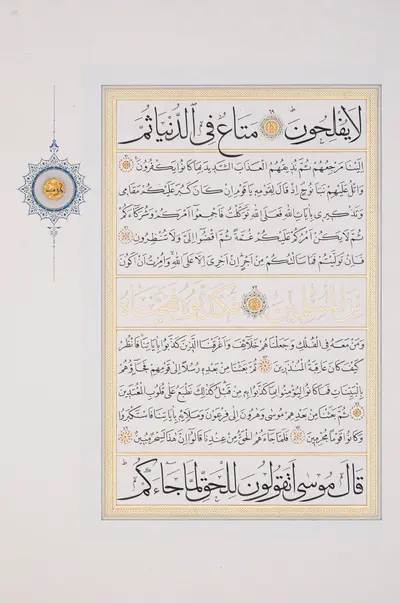 لَا يُفْلِحُونَ مَتَاعٌ فِي الدُّنْيَا ثُمَّ
إِلَيْنَا مَرْجِعُهُمْ ثُمَّ نُذِيقُهُمُ الْعَذَابَ الشَّدِيدَ بِمَا كَانُوا يَكْفُرُونَ
وَاتْلُ عَلَيْهِمْ نَبَأَ نُوحٍ إِذْ قَالَ لِقَوْمِهِ يَا قَوْمِ إِنْ كَانَ كَبُرَ عَلَيْكُمْ مَقَامِي
وَتَذْكِيرِي بِآيَاتِ اللَّهِ فَعَلَى اللَّهِ تَوَكَّلْتُ فَأَجْمِعُوا أَمْرَكُمْ وَشُرَكَاءَكُمْ
ثُمَّ لَا يَكُنْ أَمْرُكُمْ عَلَيْكُمْ غُمَّةً ثُمَّ اقْضُوا إِلَيَّ وَلَا تُنْظِرُونِ
فَإِنْ تَوَلَّيْتُمْ فَمَا سَأَلْتُكُمْ مِنْ أَجْرٍ إِنْ أَجْرِيَ إِلَّا عَلَى اللَّهِ وَأُمِرْتُ أَنْ أَكُونَ
مِنَ الْمُسْلِمِينَ فَكَذَّبُوهُ فَنَجَّيْنَاهُ
وَمَنْ مَعَهُ فِي الْفُلْكِ وَجَعَلْنَاهُمْ خَلَائِفَ وَأَغْرَقْنَا الَّذِينَ كَذَّبُوا بِآيَاتِنَا فَانْظُرْ
كَيْفَ كَانَ عَاقِبَةُ الْمُنْذَرِينَ ثُمَّ بَعَثْنَا مِنْ بَعْدِهِ رُسُلًا إِلَى قَوْمِهِمْ فَجَاءُوهُمْ
بِالْبَيِّنَاتِ فَمَا كَانُوا لِيُؤْمِنُوا بِمَا كَذَّبُوا بِهِ مِنْ قَبْلُ كَذَلِكَ نَطْبَعُ عَلَى قُلُوبِ الْمُعْتَدِينَ
ثُمَّ بَعَثْنَا مِنْ بَعْدِهِمْ مُوسَى وَهَرُونَ إِلَى فِرْعَوْنَ وَمَلَائِهِ بِآيَاتِنَا فَاسْتَكْبَرُوا
وَكَانُوا قَوْمًا مُجْرِمِينَ فَلَمَّا جَاءَهُمُ الْحَقُّ مِنْ عِنْدِنَا قَالُوا إِنَّ هَذَا لَسِحْرٌ مُبِينٌ
قَالَ مُوسَى أَتَقُولُونَ لِلْحَقِّ لَمَّا جَاءَكُمْ